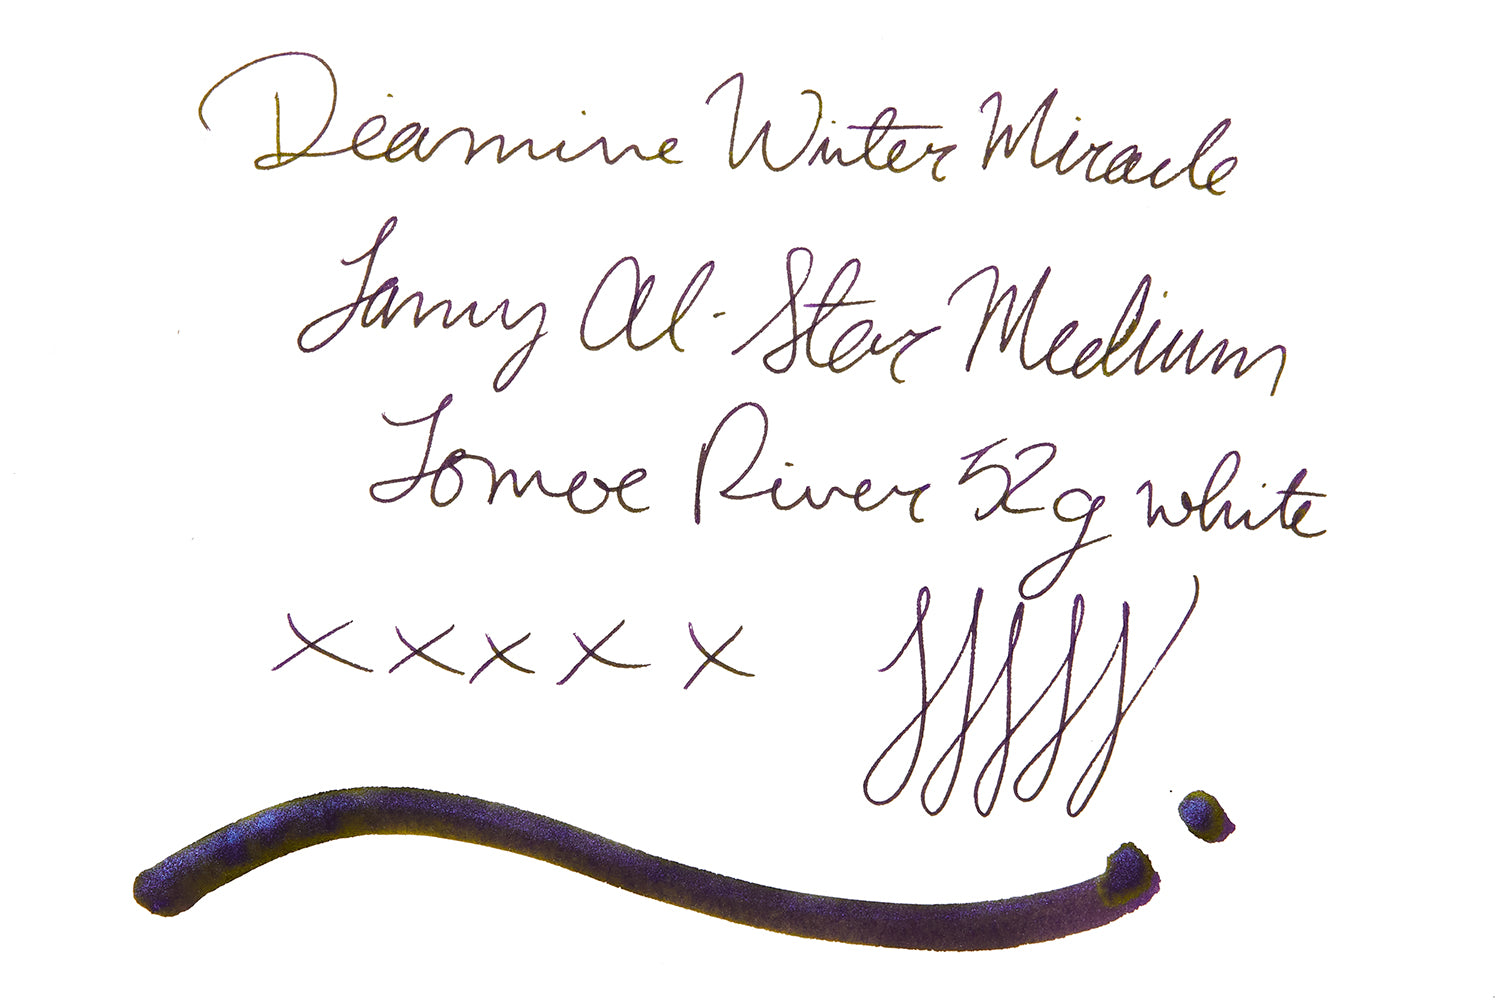 Diamine Winter Miracle
Lamy Al-Star Medium
Tomoe River 52g white
x x x x x